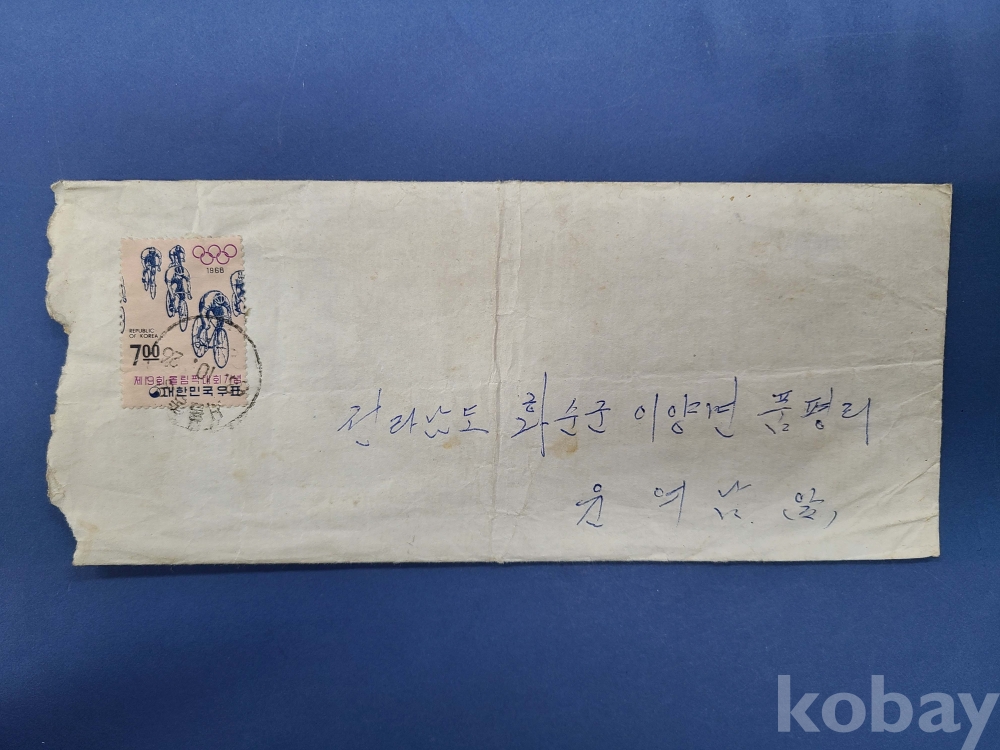 1968
REPUBLIC
OF KOREA
7 00
제19회 올림픽대회기념
대한민국우표
전라남도 화순군 이양면 품평리
윤여남 (앞)
kobay